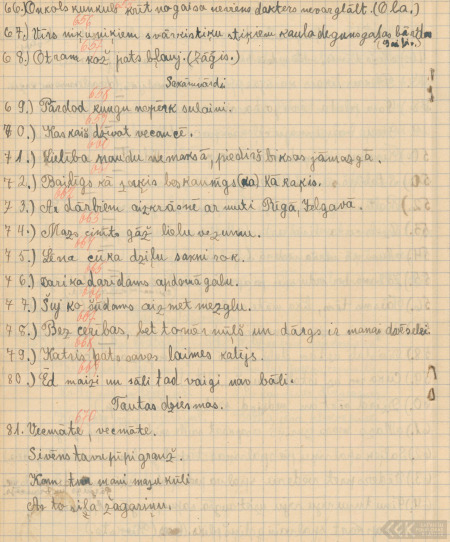 66.) Onkols kunkuls krīt no gaisa neviens dakters nevar glābt. (Ola.)
656
67.) Virs niķu ņiķiem svārvistiķu stiķiem kaula deguns gaļas bārzda
(Gailis.)
657
68.) Otram kož pats bļauj. (Zāģis.)
Sakāmvārdi
658
69.) Pārdod kungu nopērk sulaini.
659
70.) Kas kaiš dzīvot vecancē.
660
71.) Lielība naudu nemaksā, piedirš bikses jāmazgā.
661
72.) Bailīgs kā zaķis beskaunīgs kā kaķis.
662
73.) Ar dārbiem aizkrāsnē ar muti Rīgā, Jelgavā.
663
74.) Mazs cinīts gāž lielu vezumu.
664
75.) Lēna cūka dziļu sakni rok.
665
76.) Dari ka darīdams apdomā galu.
666
77.) Šuj ko šūdams aizmet mezglu.
667
78.) Bez cerības, bet tomēr mīļš un dārgs ir manai dvēselei.
668
79.) Katris pats savas laimes kalējs.
669
80.) Ēd maizi un sāli tad vaigi nav bāli.
Tautas dziesmas.
670
81. Vecmāte, vecmāte.
Sivēns tavu pīpi grauž.
Kam tu mani mazu kūli
Ar to siļa žagariņu.